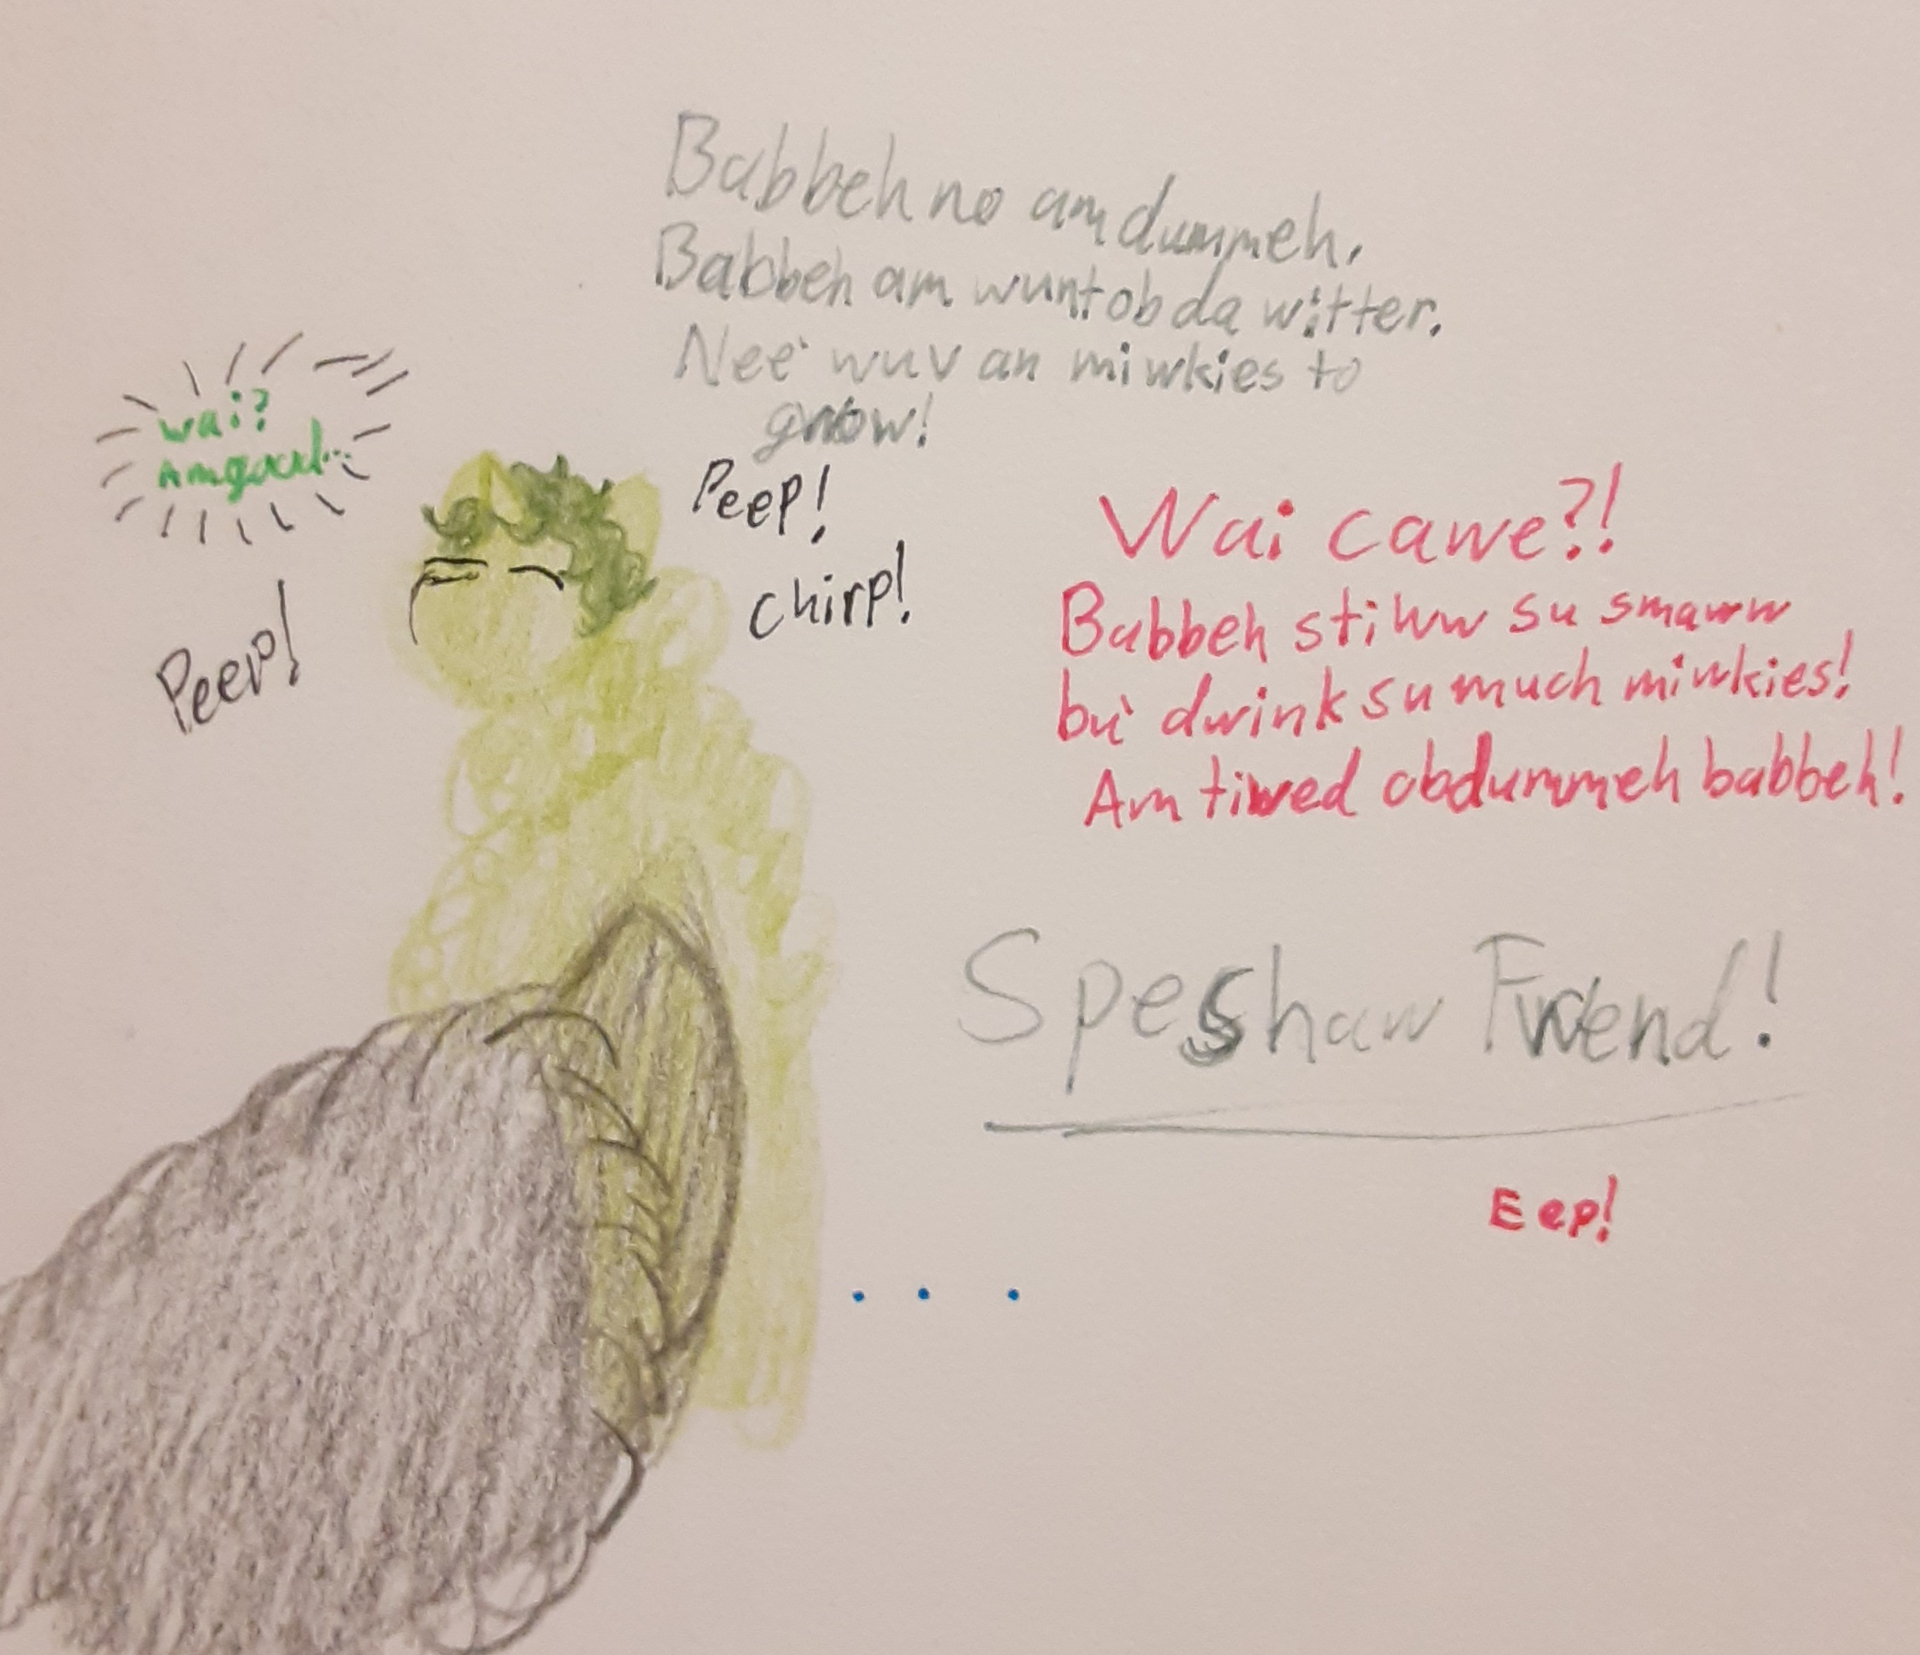 Babbeh no am dummeh.
Babbeh am wunt ob da witter.
Nee' wuv an miwkies to
gwow!
wai?
Am gud...
Peep!
chirp!
Peep!
Wai cawe?!
Babbeh stiww su smaww
bu' dwink su much miwkies!
Am tiwed ob dummeh babbeh!
Speshaw Fwend!
Eep!
. . .